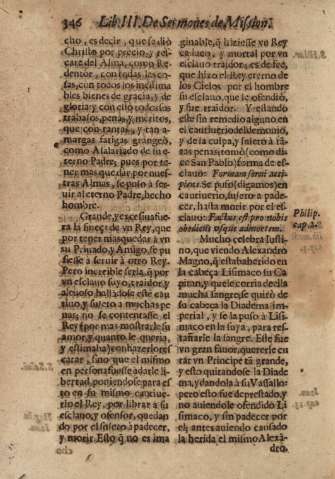 346 Lib. III. De Sermones de Mission.
cho, es decir, que se diò
Christo por precio, y res-
cate del Alma, como Re-
demtor, con todas las co-
sas, con todos los
bles bienes de gracia, y de
gloria: y con todos sus
trabajos, penas, y meritos,
que con tantas, y tan a-
margas fatigas grangeò,
como Asalariado de su e-
terno Padre; pues por te-
ner mas que dar por nues-
tras Almas, se puso à ser-
vir al eterno Padre, hecho
hombre.
Grande, y excessiva fue-
ra la fineza de vn Rey, que
por tener mas que dar à vn
su Privado, y Amigo, se pu-
siesse à servir à otro Rey.
Pero increible seria, q por
vn esclavo suyo, traidor, y
alevoso hallandole este cau-
tivo, y sujeto à muchas pe-
nas; no se contentasse el
Rey (por mas mostrarle su
amor, y quanto le queria,
y estimaba) con hazerlo res-
catar, sino que el mismo
en persona fuesse à darle li-
bertad, poniendose para es-
to en su mismo cautive-
rio el Rey, por librar à su
esclavo, y ofensor, quedan-
do por el sujeto à padecer,
y morir. Esto q no es ima-
cho
ginable, q hiziesse vn Rey
caduco, y mortal por vn
esclavo traidor; esso fue,
que hizo el Rey eterno de
los Cielos por el hombre
su esclavo, que le ofendiò,
y fue traidor. Y estando
este sin remedio alguno en
el cautiverio del demonio,
y de la culpa, y sujeto à tã-
tas penas; tomò (como dize
San Pablo) forma de es-
clavo: Formam servi acci-
piens. Se puso (digamos) en
cautiverio, sujeto à pade-
cer, hasta morir por el es-
clavo: Factus est pro nobis
obediens usque ad mortem.
Philip.
cap. 2.
Mucho celebra Justi-
no, que viendo Alexandro
Magno, q estaba herido en
la cabeça Lisimaco su Ca-
pitan, y que le corria de ella
mucha sangre, se quitò de
su cabeça la Diadema Im-
perial, y se la puso à Lisi-
maco en la suya, para res-
tañarle la sangre. Este fue
vn gran favor, querer le cu-
rar vn Principe tã grande,
y esto quitandose la Diade-
ma, y dandola à su Vassallo:
pero esto fue de prestado, y
no aviendole ofendido Li-
simaco, y sin padecer por
el; antes aviendo causado
la herida el mismo Alexã-
dro.